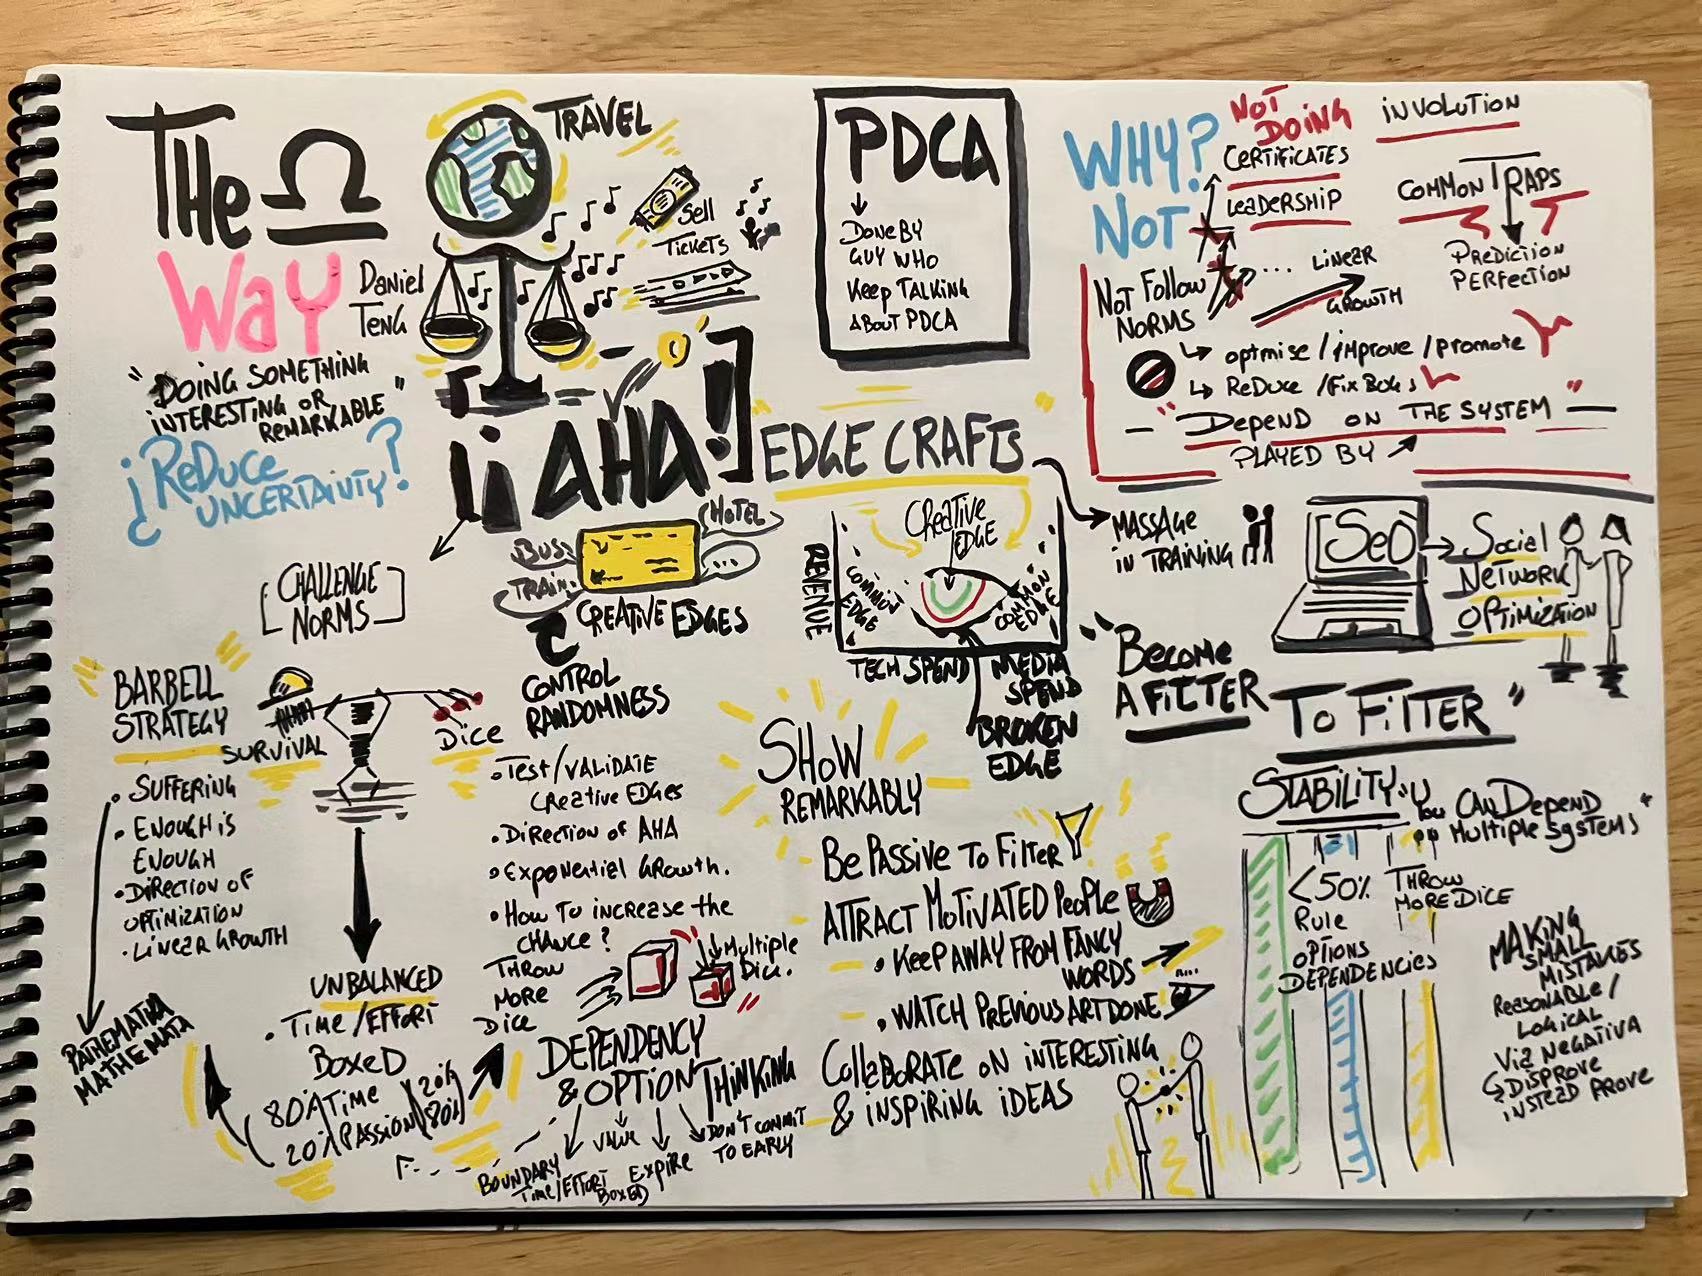 THE ♎
WAY
Daniel
TENG
"DOING SOMETHING
INTERESTING OR
REMARKABLE"
¿REDUCE
UNCERTAINTY?
TRAVEL
SELL
TICKETS
¡¡AHA!]
PDCA
DONE BY
GUY WHO
KEEP TALKING
ABOUT PDCA
WHY?
NOT
NOT
DOING
CERTIFICATES
LEADERSHIP
INVOLUTION
COMMON TRAPS
PREDICTION
PERFECTION
NOT FOLLOW
NORMS
... LINEAR
GROWTH
OPTMISE / IMPROVE / PROMOTE
REDUCE / FIX BUGS
"DEPEND ON THE SYSTEM"
PLAYED BY
EDGE CRAFTS
CREATIVE
EDGE
REVENUE
COMMON
EDGE
COMMON
EDGE
TECH SPEND
MEDIA
SPEND
BROKEN
EDGE
MASSAGE
IN TRAINING
SEO
SOCIAL
NETWORK
OPTIMIZATION
"BECOME
A FILTER
TO FILTER"
[CHALLENGE
NORMS]
BUS
TRAIN.
HOTEL
...
CREATIVE EDGES
CONTROL
RANDOMNESS
• TEST/VALIDATE
CREATIVE EDGES
• DIRECTION OF AHA
• EXPONENTIAL GROWTH.
• HOW TO INCREASE THE
CHANCE?
THROW
MORE
DICE
MULTIPLE
DICE.
BARBELL
STRATEGY
SURVIVAL
DICE
• SUFFERING
• ENOUGH IS
ENOUGH
• DIRECTION OF
OPTIMIZATION
• LINEAR GROWTH
PATHEMATHA
MATHEMATA
UNBALANCED
• TIME/EFFORT
BOXED
80% TIME
20% PASSION
20%
80%
DEPENDENCY
& OPTION THINKING
BOUNDARY
TIME/EFFORT
BOXED
VALUE
EXPIRE
DON'T COMMIT
TO EARLY
SHOW
REMARKABLY
BE PASSIVE TO FILTER
ATTRACT MOTIVATED PEOPLE
• KEEP AWAY FROM FANCY
WORDS
• WATCH PREVIOUS ART DONE
COLLABORATE ON INTERESTING
& INSPIRING IDEAS
STABILITY
"YOU CAN DEPEND
ON MULTIPLE SYSTEMS"
<50%
RULE
OPTIONS
DEPENDENCIES
THROW
MORE DICE
MAKING
SMALL
MISTAKES
REASONABLE /
LOGICAL
VIA NEGATIVA
DISPROVE
INSTEAD PROVE